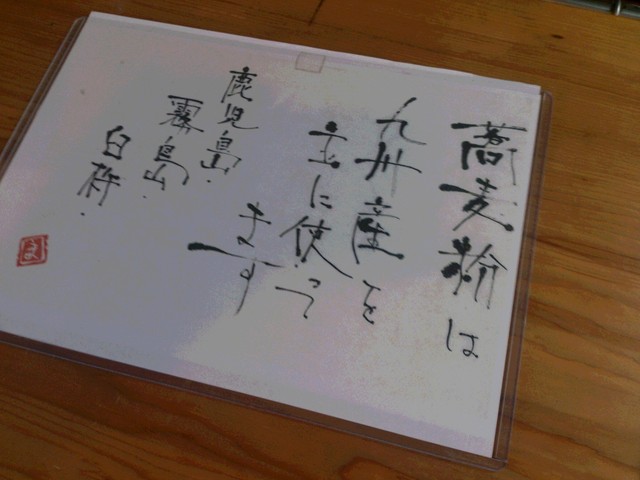 蕎麦粉は
九州産を
主に使って
ます
鹿児島.
霧島山.
臼杵.